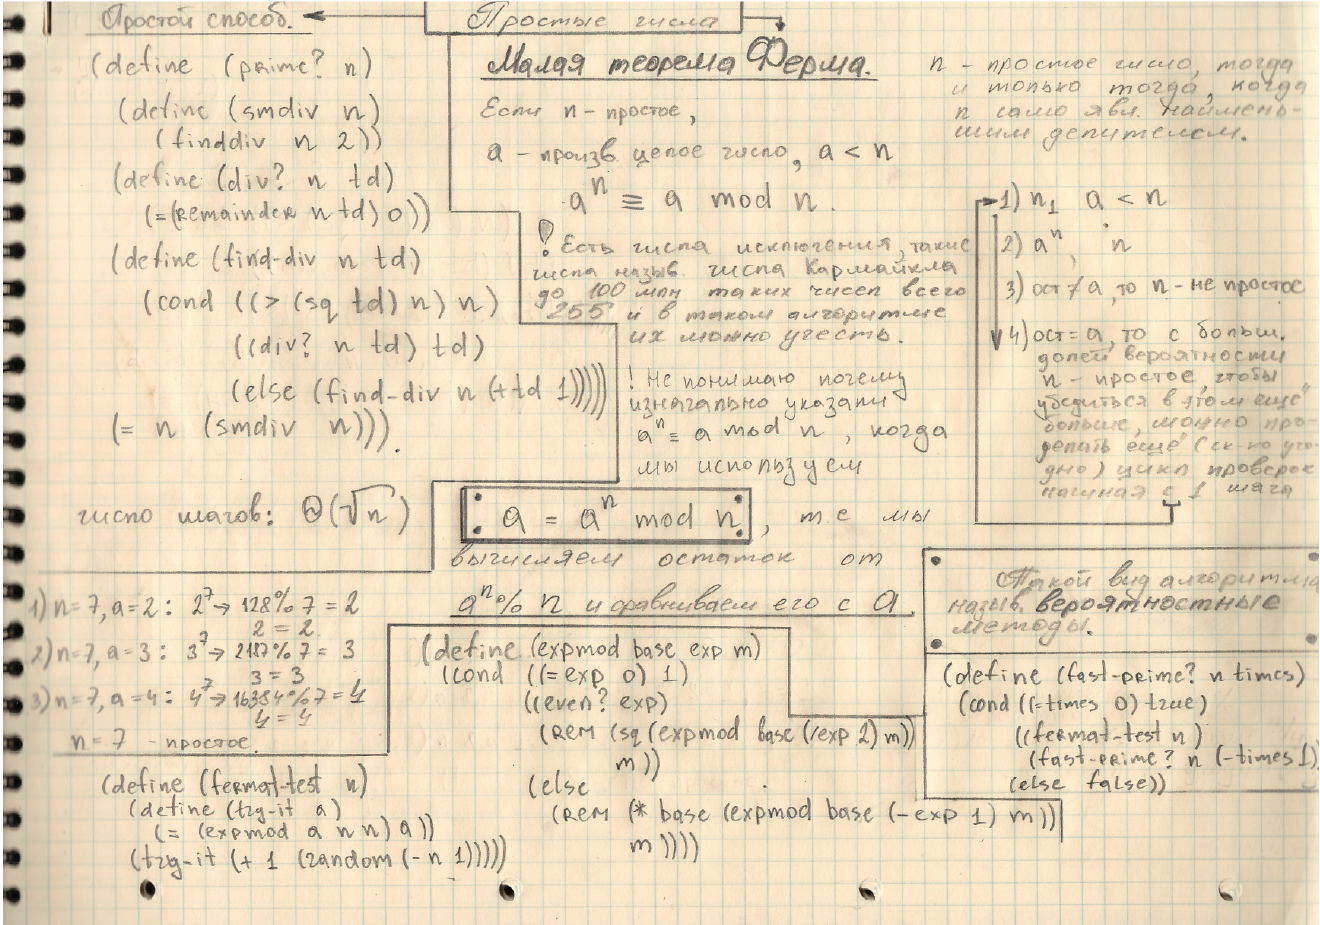 Простой способ.
Простые числа
(define (prime? n)
(define (smdiv n)
(finddiv n 2))
(define (div? n td)
(=(remainder n td) 0))
(define (find-div n td)
(cond ((> (sq td) n) n)
((div? n td) td)
(else (find-div n (+td 1)))))
(= n (smdiv n))).
число шагов: Θ(√n)
Малая теорема Ферма.
Если n - простое,
a - произв. целое число, a < n
aⁿ ≡ a mod n.
! Есть числа исключения, такие
числа назыв. числа Кармайкла
до 100 млн таких чисел всего
255 и в таком алгоритме
их можно учесть.
! Не понимаю почему
изначально указали
aⁿ ≡ a mod n, когда
мы используем
a = aⁿ mod n, т е мы
вычисляем остаток от
aⁿ % n и сравниваем его с a.
n - простое число, тогда
и только тогда, когда
n само явл. наимень-
шим делителем.
1) n, a < n
2) aⁿ, n
3) ост ≠ a, то n - не простое
4) ост = a, то с больш.
долей вероятности
n - простое, чтобы
убедиться в этом ещё
больше, можно про-
делать ещё (ск-ко уго-
дно) цикл проверок
начиная с 1 шага
Такой вид алгоритма
назыв. вероятностные
методы.
1) n=7, a=2: 2⁷→ 128%7 = 2
2 = 2
2) n=7, a=3: 3⁷→ 2187%7 = 3
3 = 3
3) n=7, a=4: 4⁷→ 16384%7 = 4
4 = 4
n=7 - простое.
(define (fermat-test n)
(define (try-it a)
(= (expmod a n n) a))
(try-it (+ 1 (random (- n 1)))))
(define (expmod base exp m)
(cond ((= exp 0) 1)
((even? exp)
(rem (sq (expmod base (/exp 2) m))
m))
(else
(rem (* base (expmod base (- exp 1) m))
m))))
(define (fast-prime? n times)
(cond ((=times 0) true)
((fermat-test n)
(fast-prime? n (-times 1)
(else false))